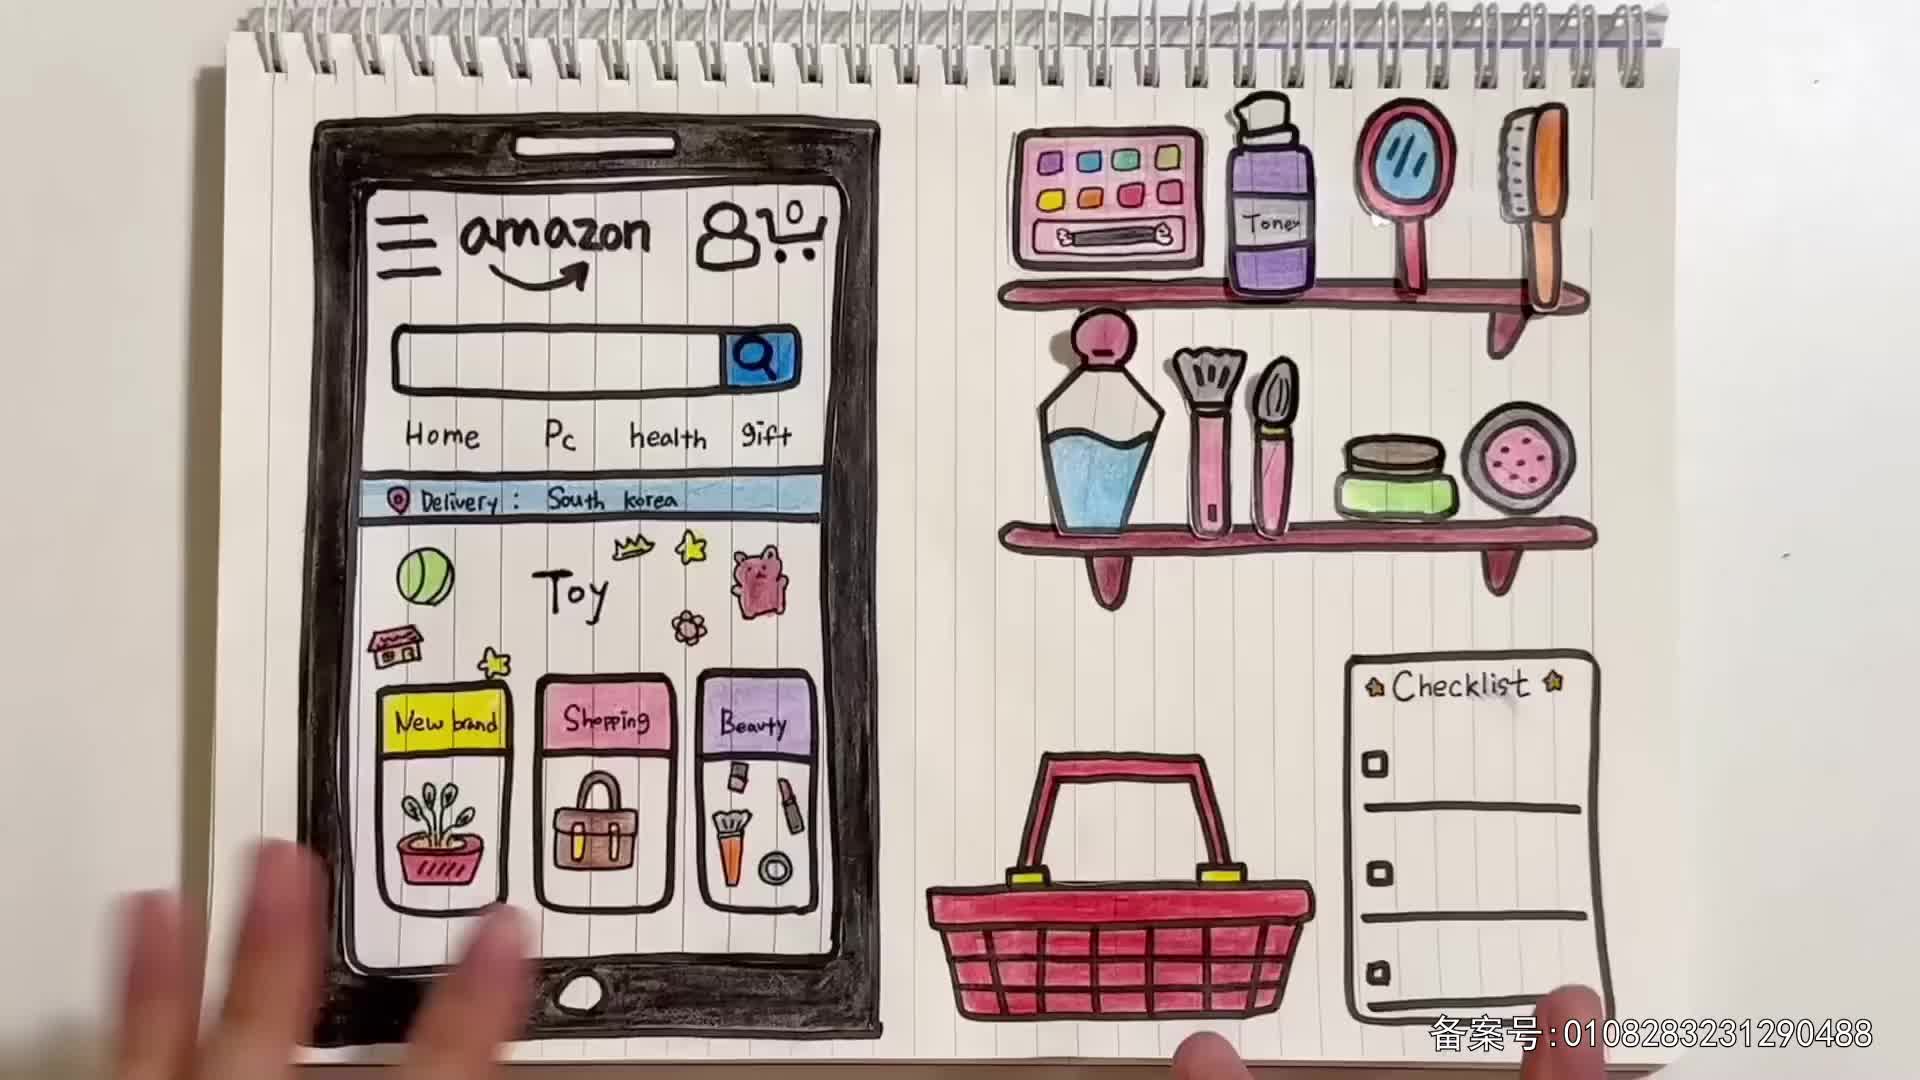 amazon
0
Home Pc health gift
Delivery : South korea
Toy
New brand
Shopping
Beauty
Toner
Checklist
备案号:0108283231290488